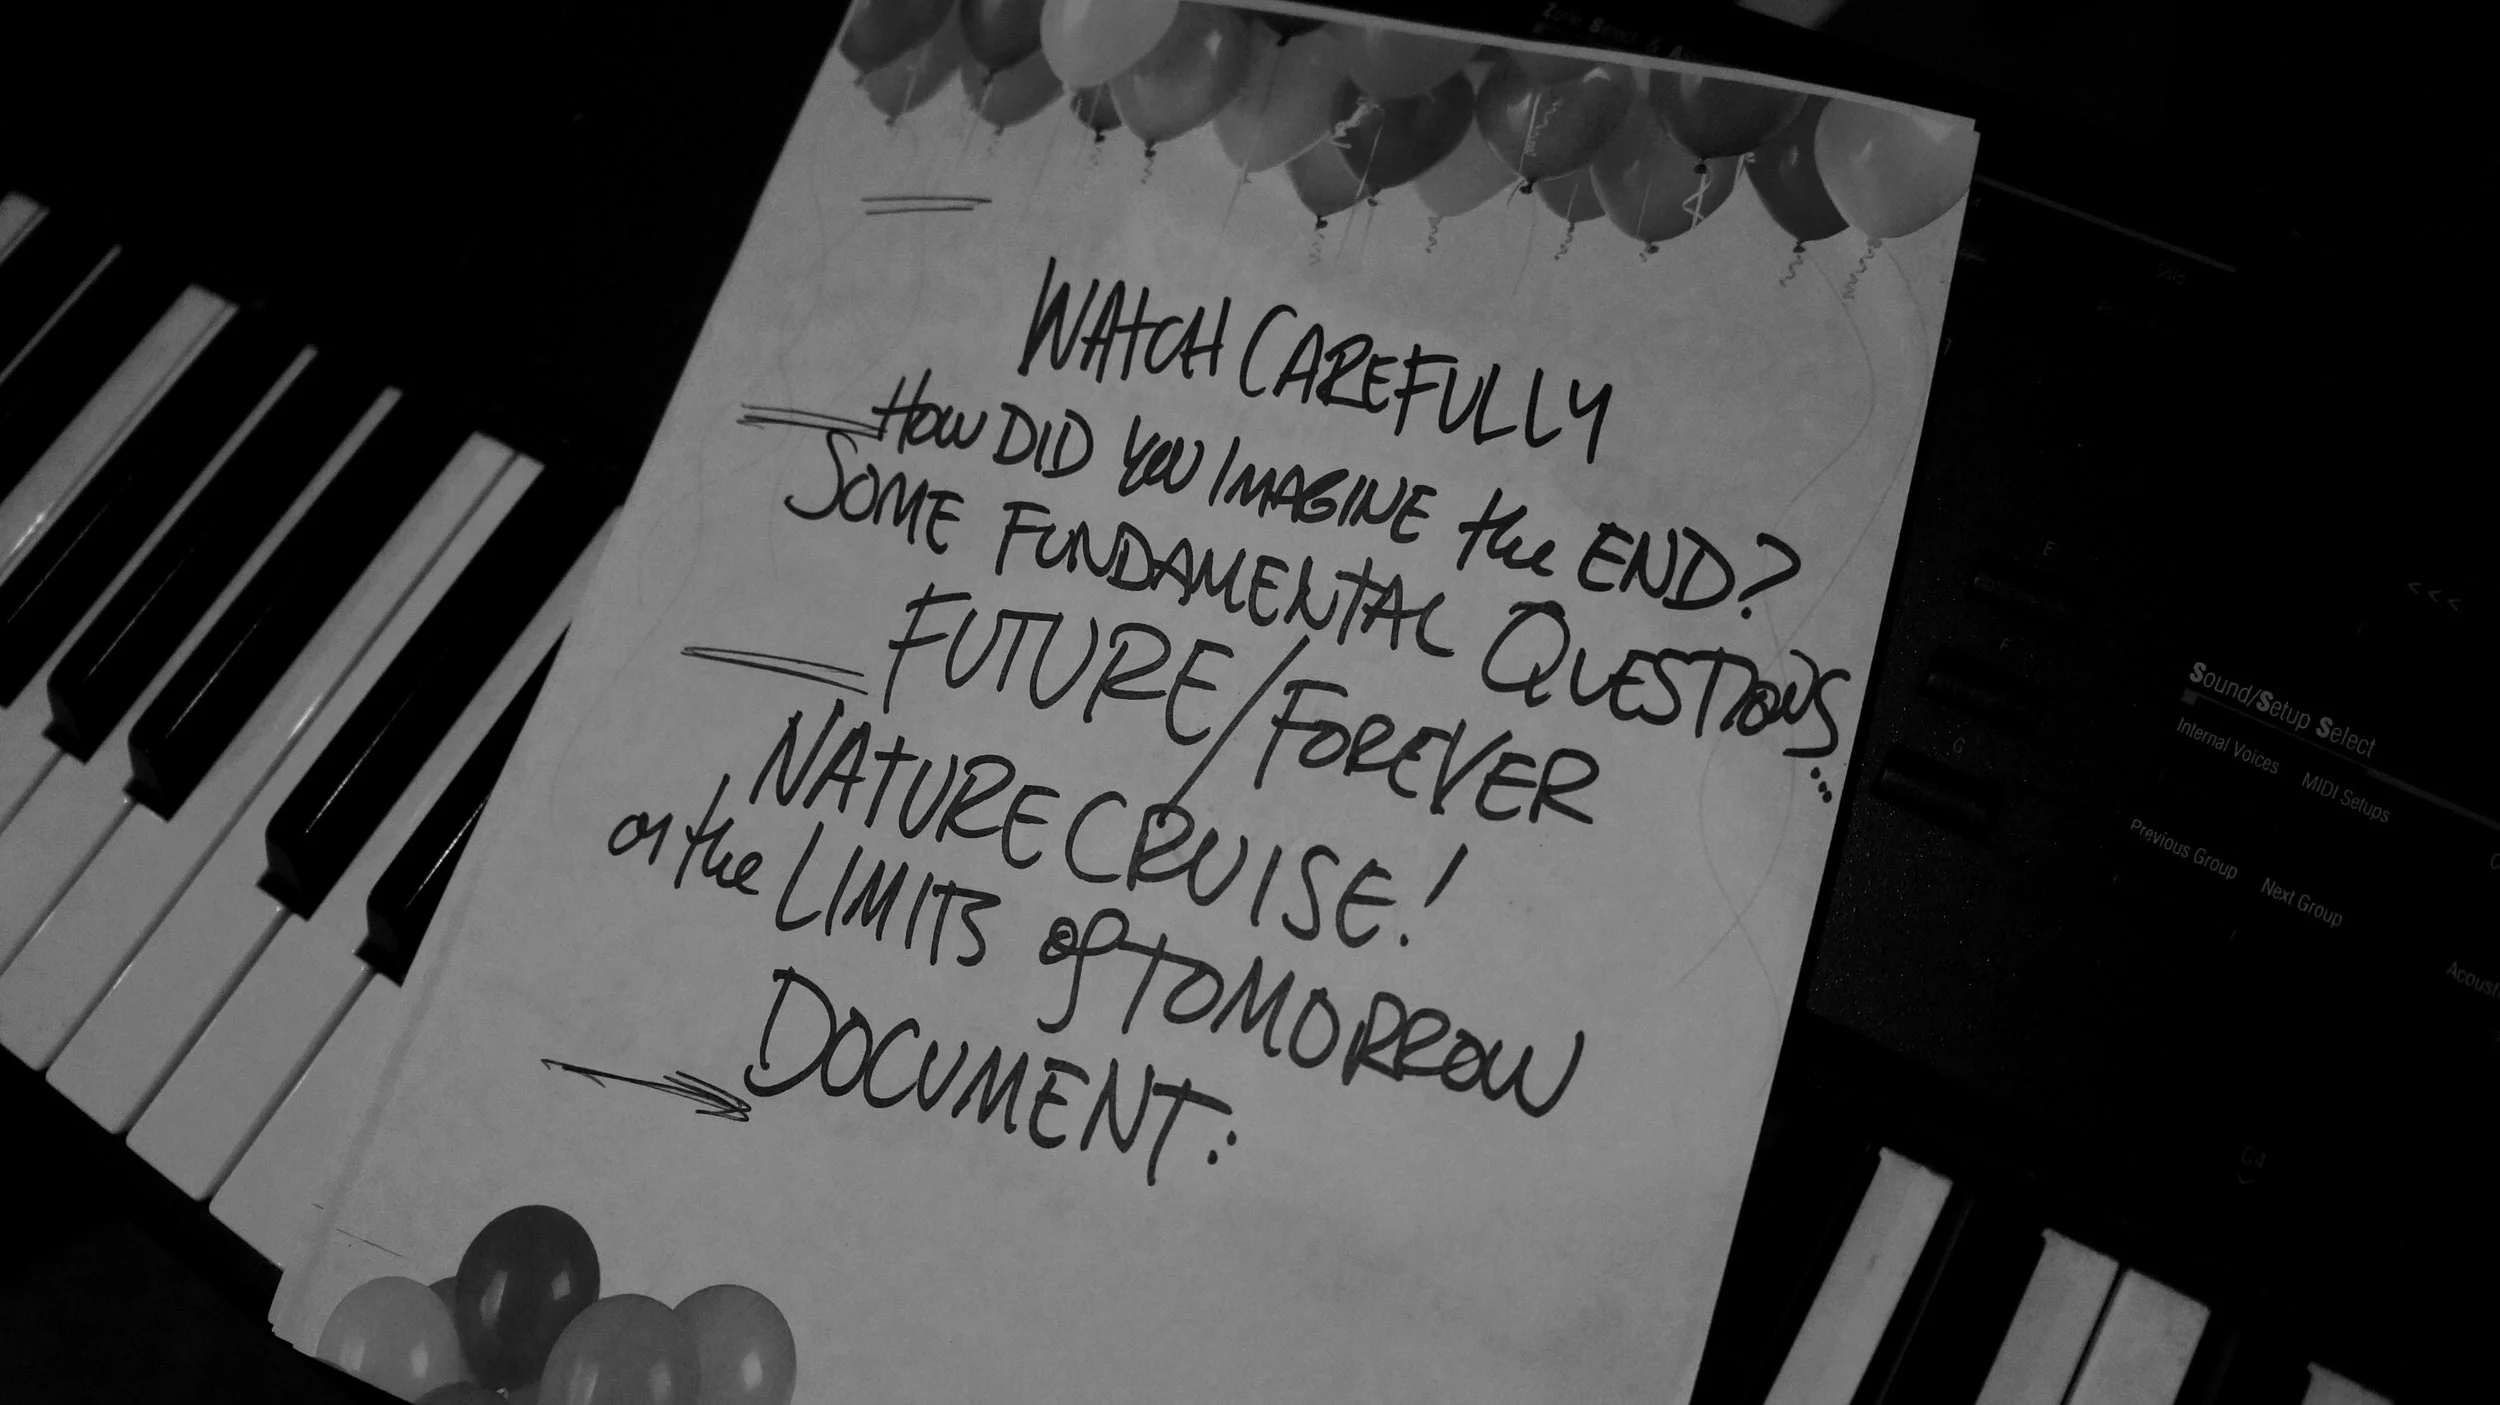 WATCH CAREFULLY
HOW DID YOU IMAGINE the END?
SOME FUNDAMENTAL QUESTIONS...
FUTURE/FOREVER
NATURE CRUISE!
on the LIMITS of TOMORROW
DOCUMENT:
Sound/Setup Select
Internal Voices MIDI Setups
Previous Group Next Group
Solo
E
F
G
<<<
C4